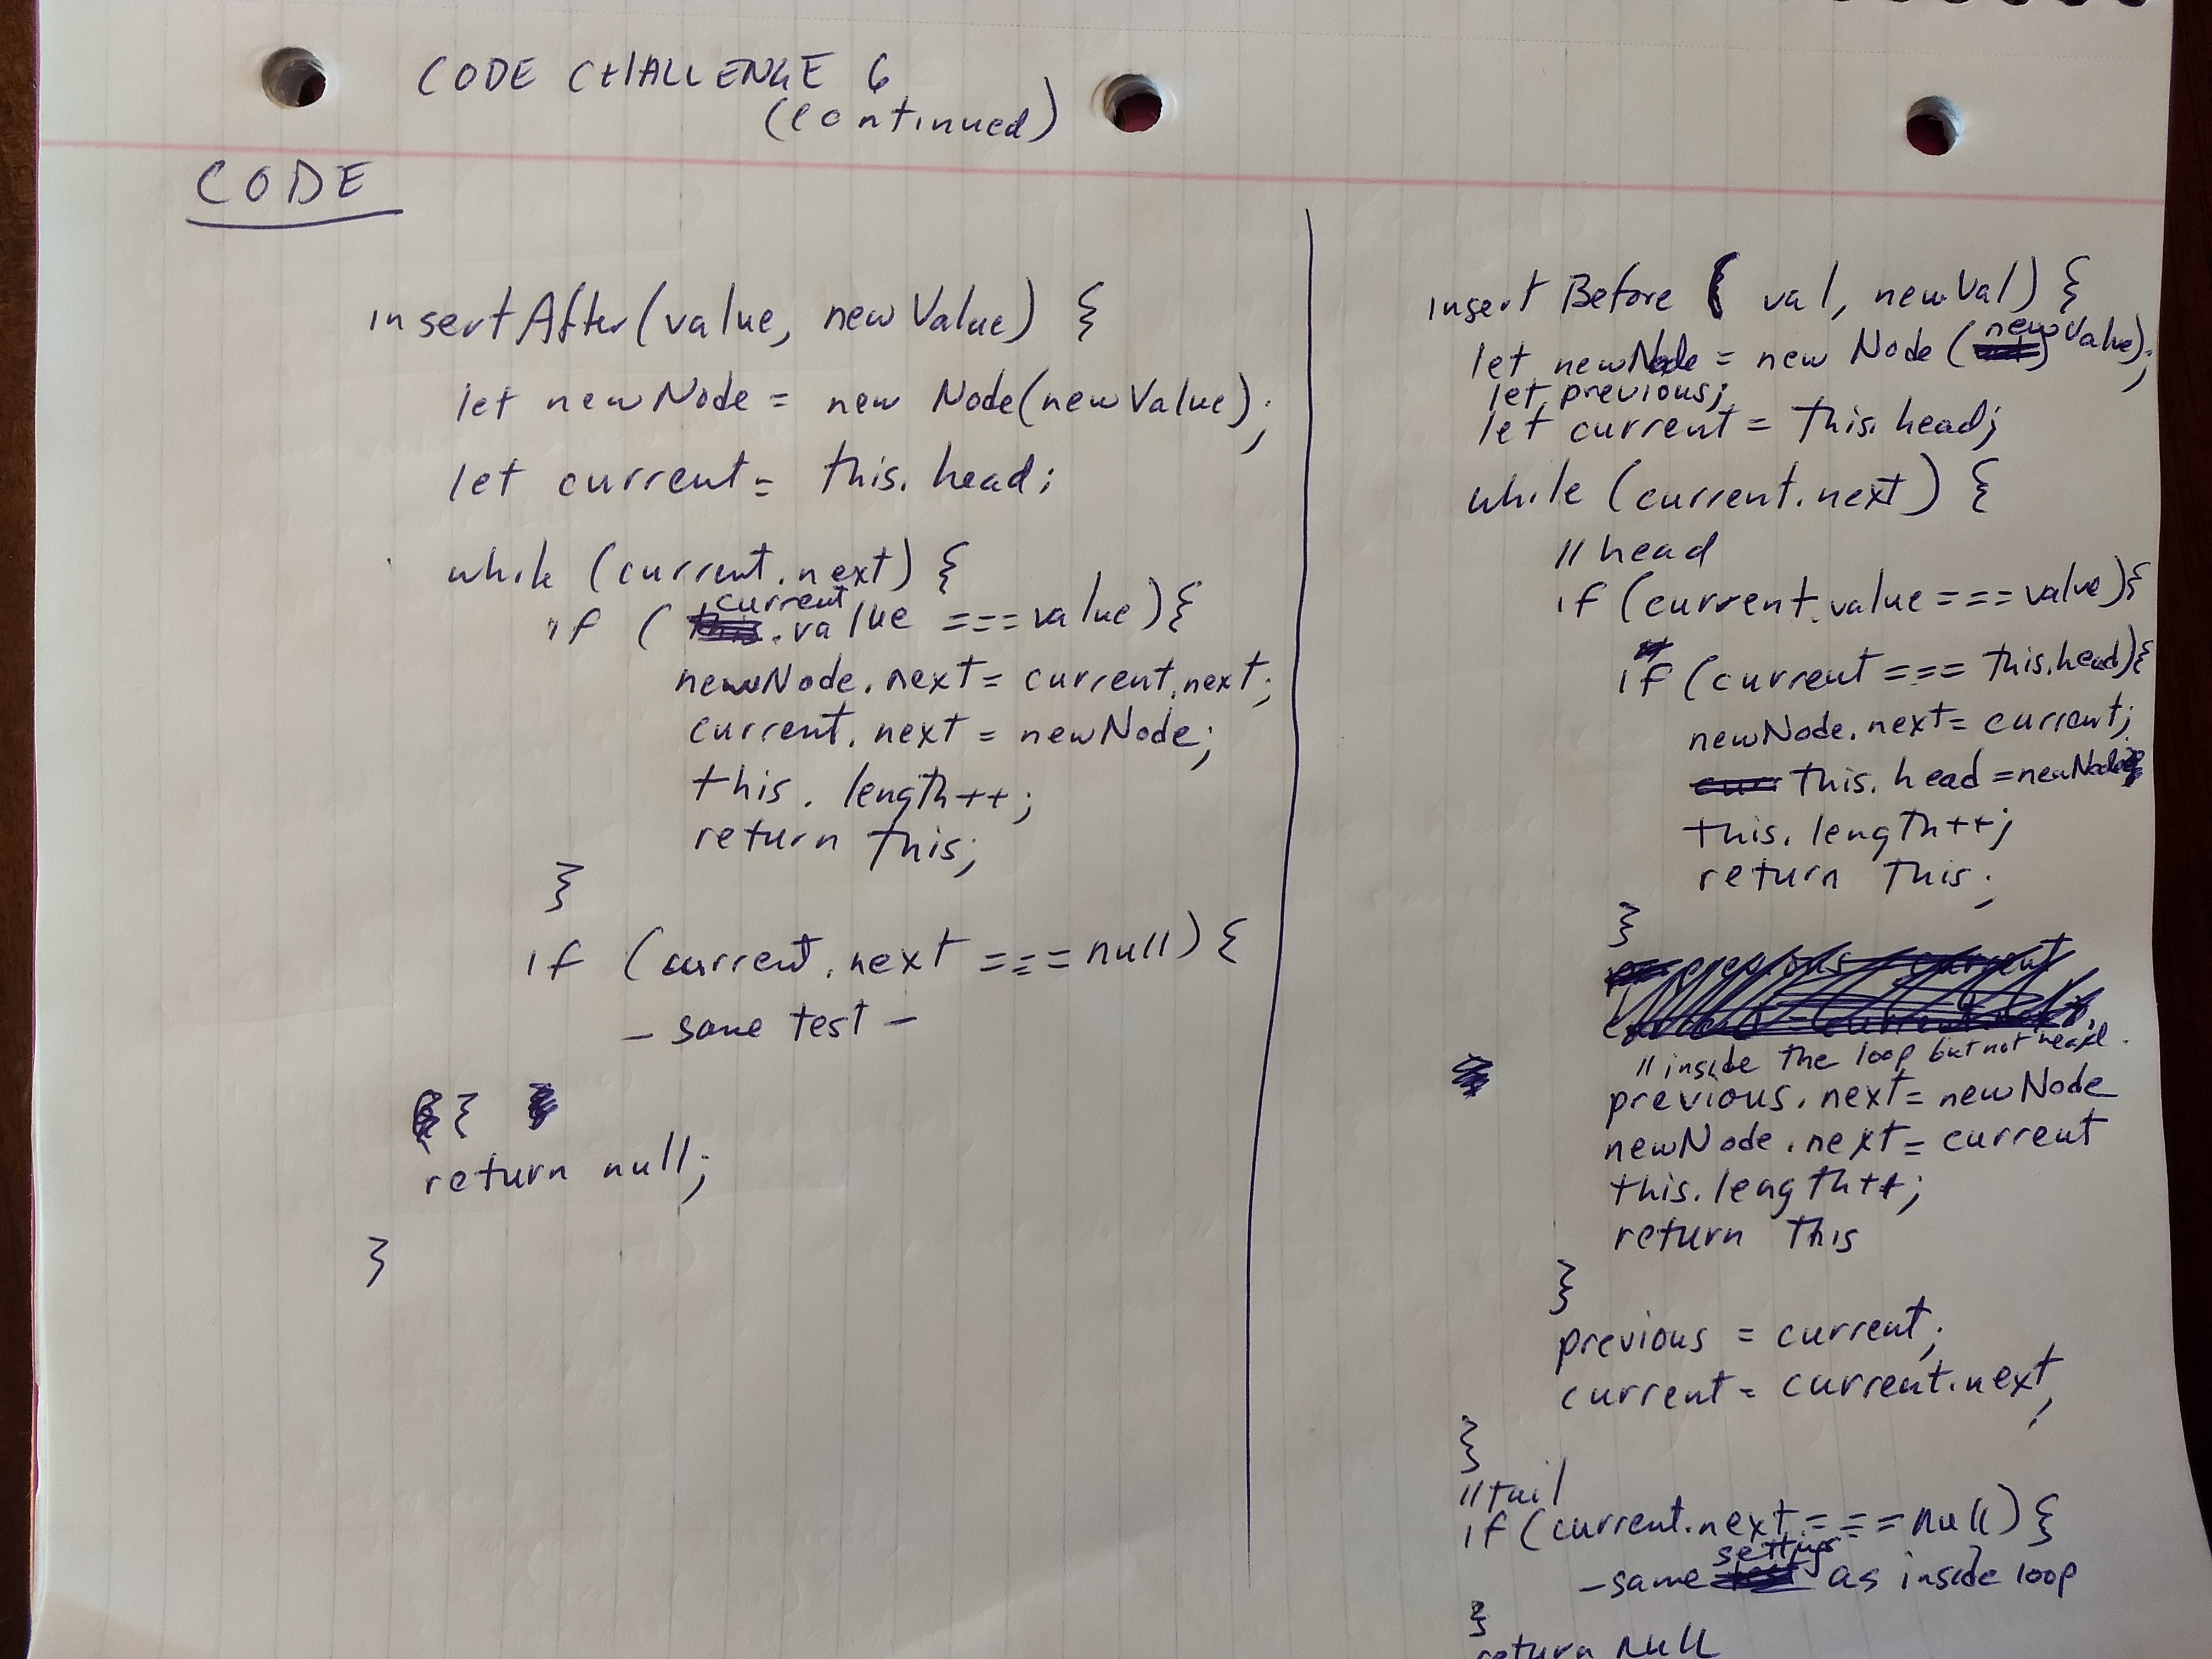 CODE CHALLENGE 6
(continued)
CODE
insertAfter(value, newValue) {
let newNode = new Node(newValue);
let current = this.head;
while (current.next) {
if (current.value === value){
newNode.next = current.next;
current.next = newNode;
this.length++;
return this;
}
if (current.next === null) {
- same test -
}
return null;
}
insertBefore ( val, newVal) {
let newNode = new Node (newValue);
let previous;
let current = this.head;
while (current.next) {
// head
if (current.value === value){
if (current === this.head){
newNode.next = current;
this.head = newNode
this.length++;
return this;
}
// inside the loop but not head.
previous.next = newNode
newNode.next = current
this.length++;
return this
}
previous = current;
current = current.next;
}
// tail
if (current.next === null) {
- same settings as inside loop
}
return null